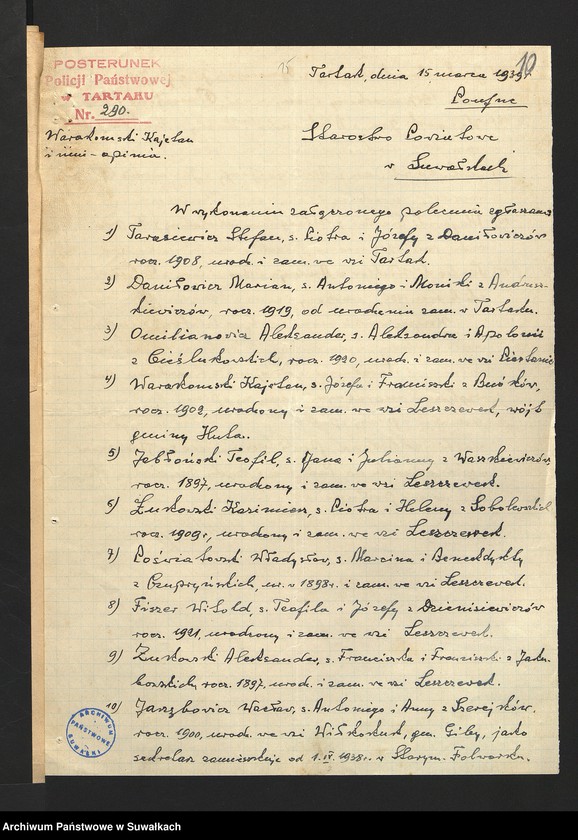 POSTERUNEK
Policji Państwowej
w TARTAKU
Nr. 290.
Tartak, dnia 15 marca 1939 r.
10
Poufne
Warakomski Kajetan
i inni - opinia.
Starostwo Powiatowe
w Suwałkach
W wykonaniu załączonego polecenia zgłaszam:
1) Tarasiewicz Stefan, s. Piotra i Józefy z Daniłowiczów
rocz. 1908, urodz. i zam. we wsi Tartak.
2) Daniłowicz Marian, s. Antoniego i Moniki z Andrusz-
kiewiczów, rocz. 1919, od urodzenia zam. w Tartaku.
3) Omilianowicz Aleksander, s. Aleksandra i Apolonii
z Cieślukowskich, rocz. 1920, urodz. i zam. we wsi
4) Warakomski Kajetan, s. Józefa i Franciszki z
rocz. 1902, urodzony i zam. we wsi Leszczewek, wójt
gminy Huta.
5) Jabłoński Teofil, s. Jana i Julianny z Waszkiewiczów,
rocz. 1897, urodzony i zam. we wsi Leszczewek.
6) Żukowski Kazimierz, s. Piotra i Heleny z Sobolewskich
rocz. 1909, urodzony i zam. we wsi Leszczewek.
7) Poświatowski Władysław, s. Marcina i Benedykty
z Czupryńskich, ur. w 1898 r. i zam. we wsi Leszczewek.
8) Fiszer Witold, s. Teofila i Józefy z Dzienisiewiczów
rocz. 1921, urodzony i zam. we wsi Leszczewek.
9) Żukowski Aleksander, s. Franciszka i Franciszki z Jaku-
bowskich, rocz. 1897, urodz. i zam. we wsi Leszczewek.
10) Jarzębowicz Wacław, s. Antoniego i Anny z Szerejków,
rocz. 1900, urodz. we wsi Wiłkokuk, gm. Giby, jako
sekretarz zamieszkuje od 1.IV.1938 r. w Starym-Folwarku.
ARCHIWUM
PAŃSTWOWE
SUWAŁKI
Archiwum Państwowe w Suwałkach